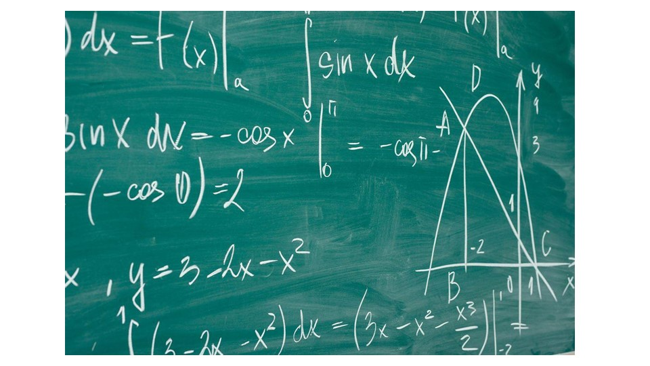 ) dx = f(x)|ₐ
∫₀ sin x dx
f(x)|ₐ
sin x dx = -cos x |₀^π = -cos π -
-(-cos 0) = 2
x, y = 3 - 2x - x²
1
∫ (3 - 2x - x²) dx = (3x - x² - x³/2)|₋₂ =
D
y
A
4
3
1
-2
C
B
0
1
x